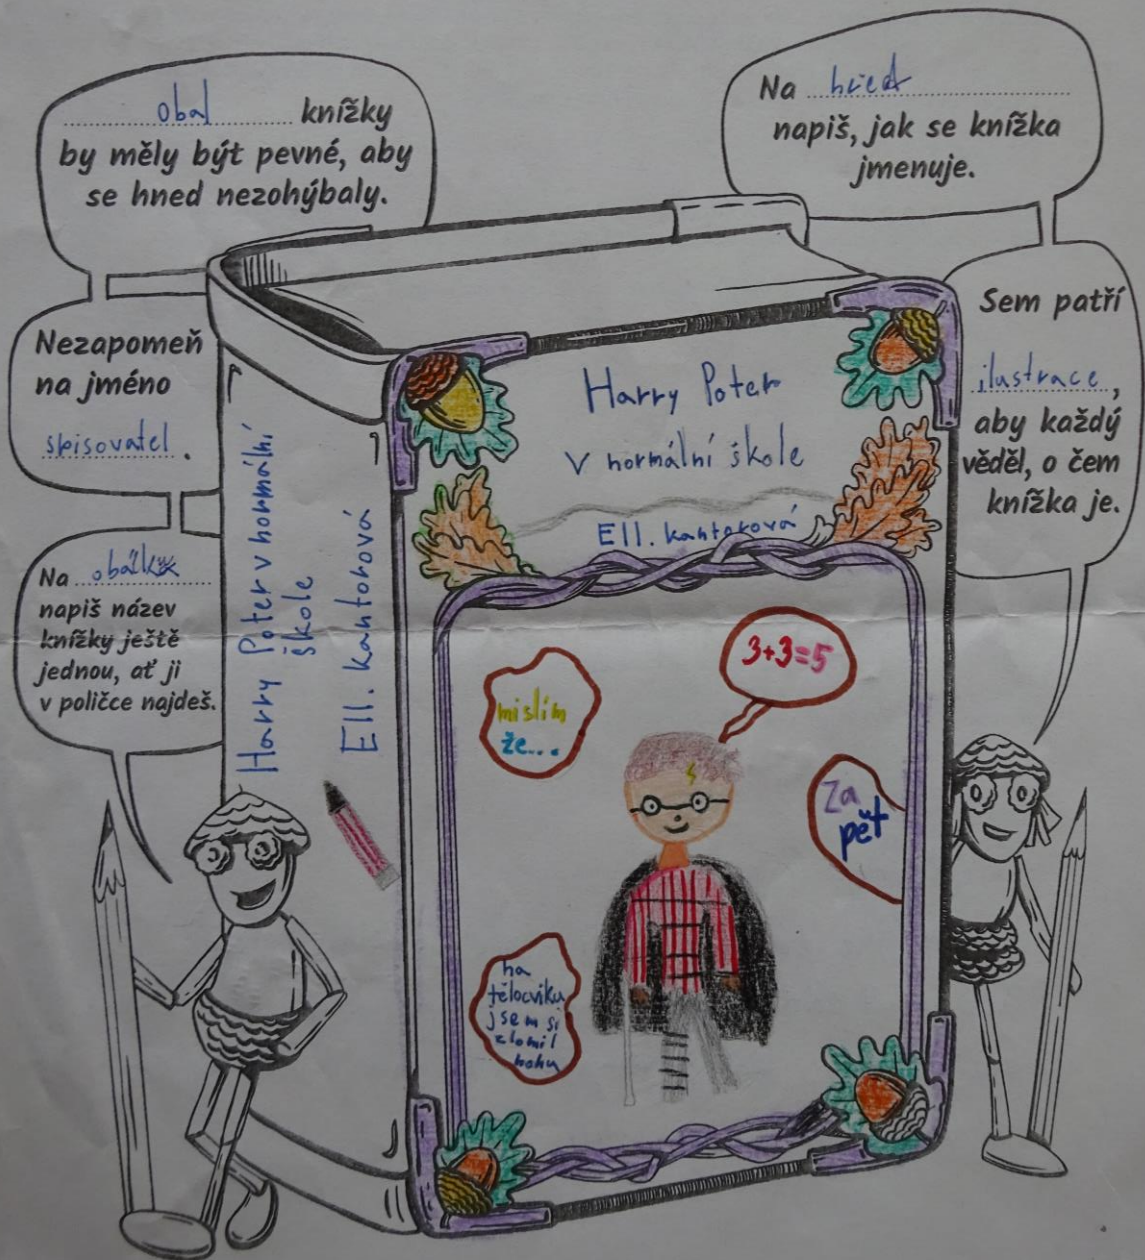 obal knížky
by měly být pevné, aby
se hned nezohýbaly.
Na
napiš, jak se knížka
jmenuje.
Nezapomeň
na jméno
spisovatel.
Sem patří
ilustrace,
aby každý
věděl, o čem
knížka je.
Na
napiš název
knížky ještě
jednou, ať ji
v poličce najdeš.
Harry Poter v normální
škole
Ell. kantorová
Harry Poter
v normální škole
Ell. kantorová
3+3=5
mislím
že...
Za
pět
na
tělocviku
jsem si
zlomil
nohu